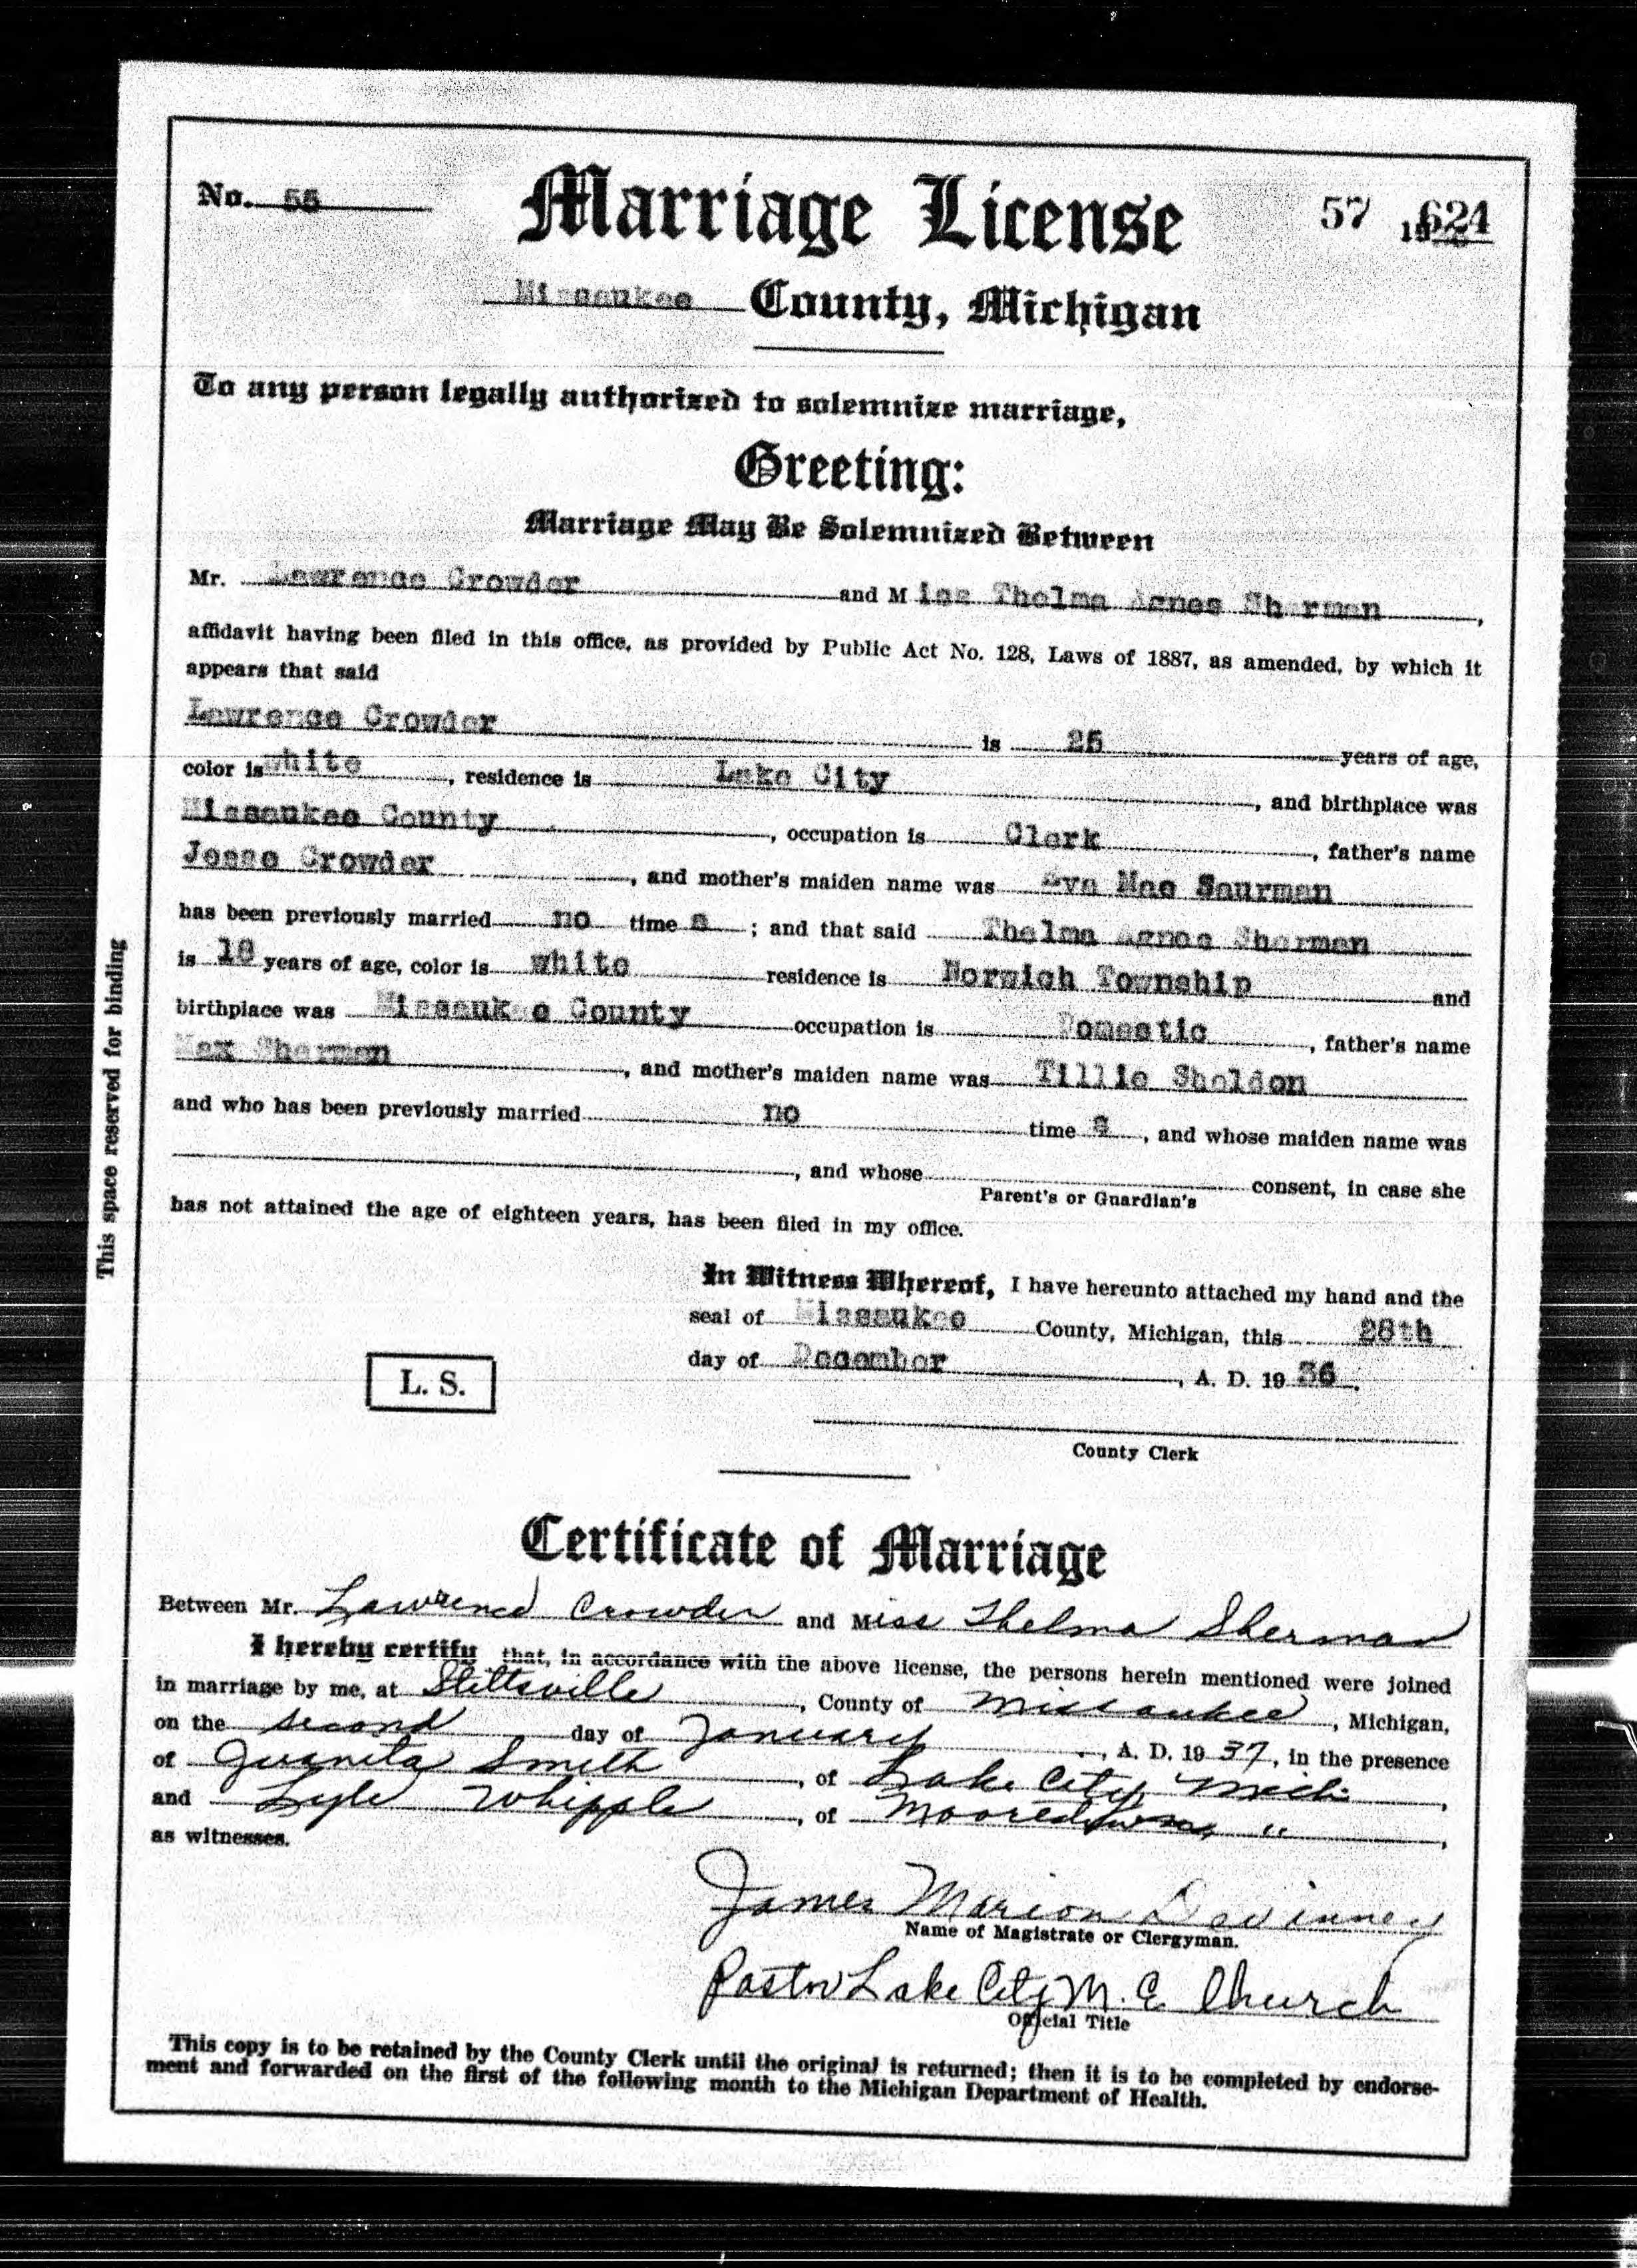 No. 55 Marriage License 57 624
Missaukee County, Michigan
To any person legally authorized to solemnize marriage,
Greeting:
Marriage May Be Solemnized Between
Mr. Lawrence Crowder and Miss Thelma Agnes Sherman,
affidavit having been filed in this office, as provided by Public Act No. 128, Laws of 1887, as amended, by which it
appears that said
Lawrence Crowder is 25 years of age,
color is white, residence is Lake City, and birthplace was
Missaukee County, occupation is Clerk, father's name
Jesse Crowder, and mother's maiden name was Eva Mae Saurman
has been previously married no time s; and that said Thelma Agnes Sherman
is 18 years of age, color is white residence is Norwich Township and
birthplace was Missaukee County occupation is Domestic, father's name
Max Sherman, and mother's maiden name was Tillie Sheldon
and who has been previously married no time s, and whose maiden name was
, and whose consent, in case she
Parent's or Guardian's
has not attained the age of eighteen years, has been filed in my office.
In Witness Whereof, I have hereunto attached my hand and the
seal of Missaukee County, Michigan, this 28th
day of December, A. D. 19 36.
L. S.
County Clerk
Certificate of Marriage
Between Mr. Lawrence Crowder and Miss Thelma Sherman
I hereby certify that, in accordance with the above license, the persons herein mentioned were joined
in marriage by me, at Stittsville, County of Missaukee, Michigan,
on the second day of January, A. D. 19 37, in the presence
of Juanita Smith, of Lake City, Mich.,
and Lyle Whipple, of Moorestown, ",
as witnesses.
James Marion DeVinney
Name of Magistrate or Clergyman.
Pastor Lake City M. E. Church
Official Title
This copy is to be retained by the County Clerk until the original is returned; then it is to be completed by endorse-
ment and forwarded on the first of the following month to the Michigan Department of Health.
This space reserved for binding